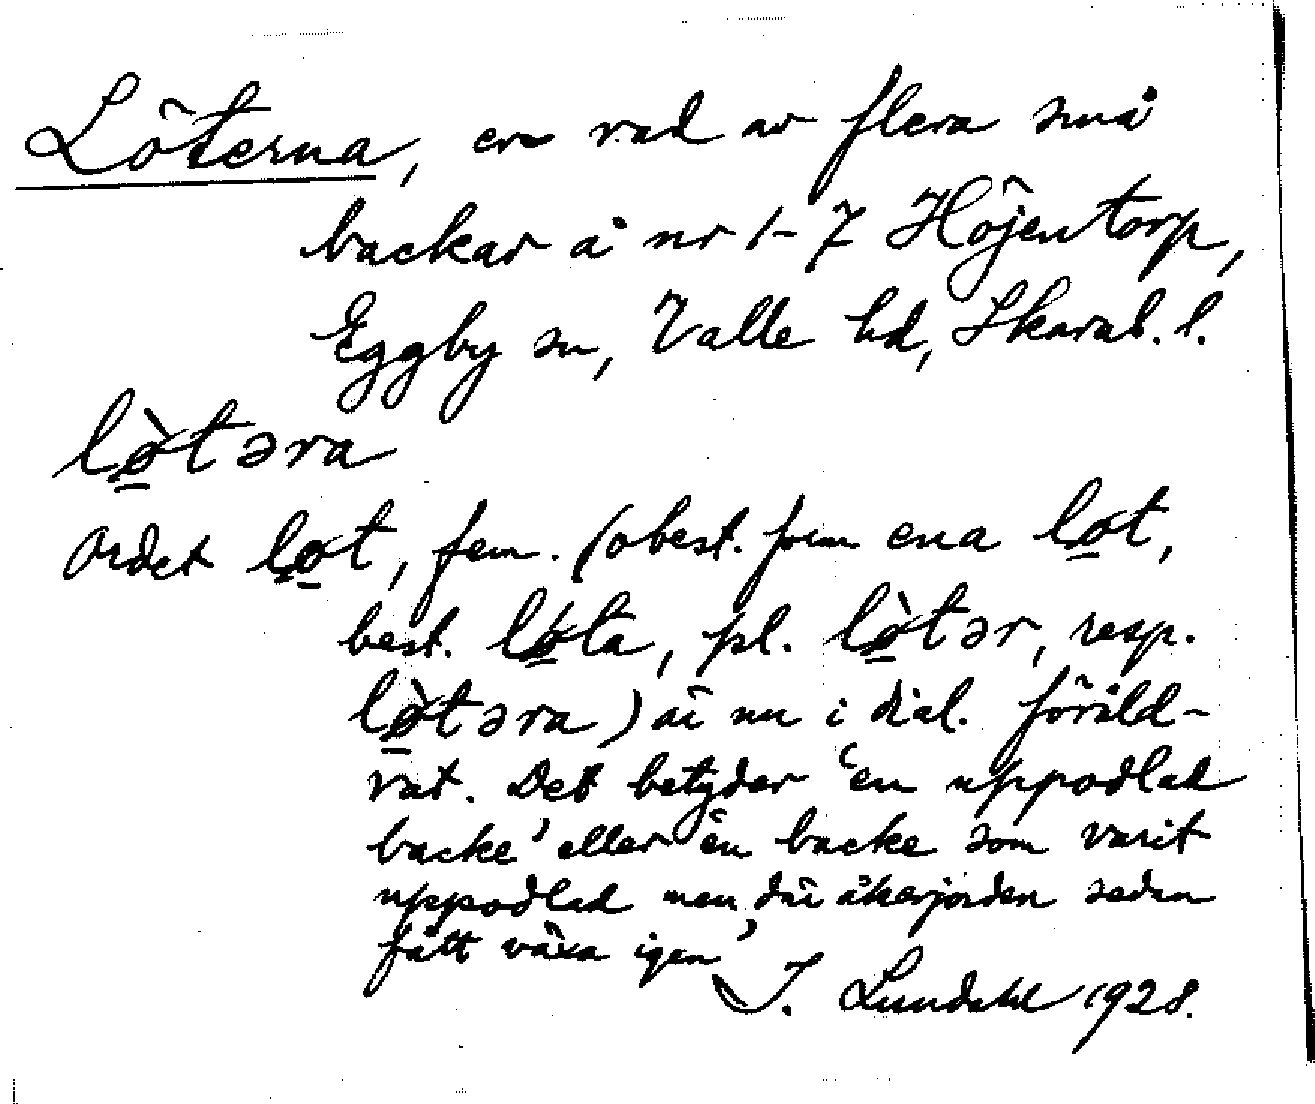 Löterna, en rad av flera små
backar å nr 1-7 Höjentorp,
Eggby sn, Valle hd, Skarab. l.
lø̠̀təra
Ordet lø̠t, fem. (obest. form ena lø̠t,
best. lǿ̠ta, pl. lø̠̀tər, resp.
lø̠̀təra) är nu i dial. föråld-
rat. Det betyder 'en uppodlad
backe' eller 'en backe som varit
uppodlad men där åkerjorden sedan
fått växa igen'
I. Lundahl 1928.